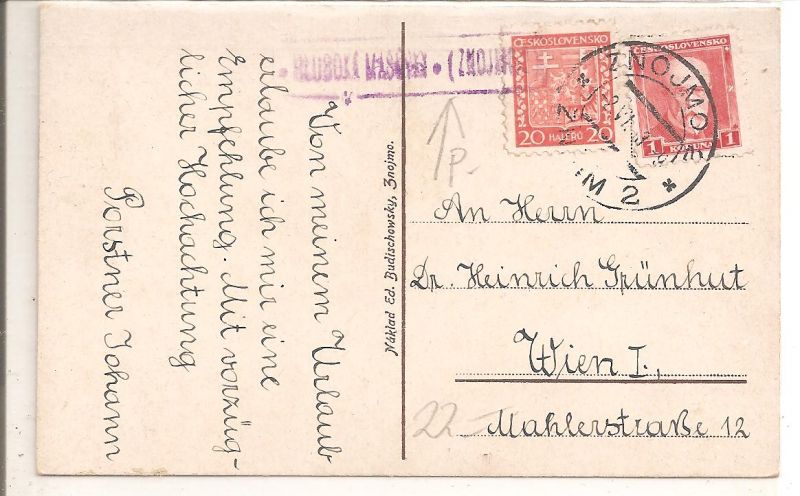 Von meinem Urlaub
erlaube ich mir eine
Empfehlung. Mit vorzüg-
licher Hochachtung
Porstner Johann
Náklad Ed. Budischowsky, Znojmo.
HLUBOKÉ MAŠŮVKY • (ZNOJMO
ČESKOSLOVENSKO
20 HALÉŘŮ 20
ČESKOSLOVENSKO
1 KORUNA 1
ZNOJMO 2
P.
An Herrn
Dr. Heinrich Grünhut
Wien I.,
22 Mahlerstraße 12